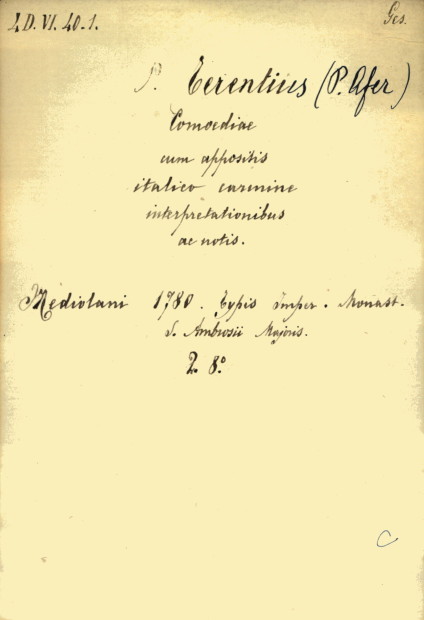 4 D. VI. 40.1. Ges.
P. Terentius (P. Afer)
Comoediae
cum appositis
italico carmine
interpretationibus
ac notis.
Mediolani 1780. Typis Imper. Monast.
S. Ambrosii Majoris.
2. 8º
C